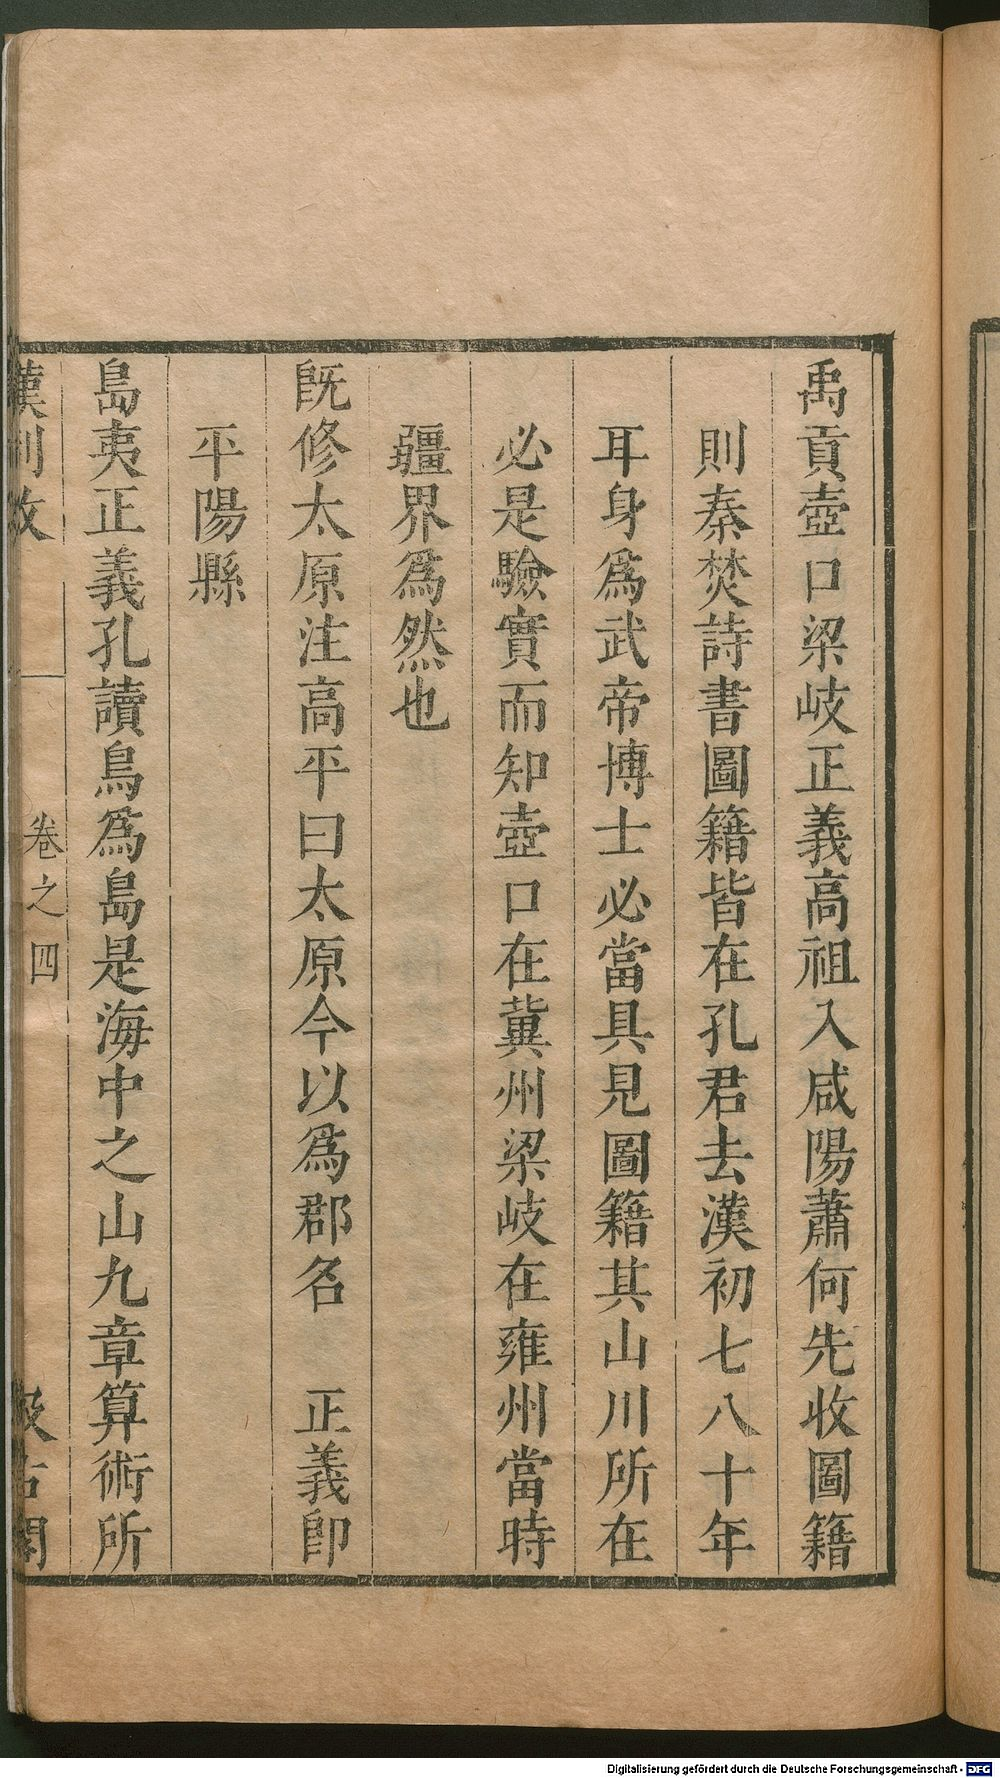 禹貢壺口梁岐正義高祖入咸陽蕭何先收圖籍
則秦焚詩書圖籍皆在孔君去漢初七八十年
耳身爲武帝博士必當具見圖籍其山川所在
必是驗實而知壺口在冀州梁岐在雍州當時
疆界爲然也
旣修太原注高平曰太原今以爲郡名 正義卽
平陽縣
島夷正義孔讀鳥爲島是海中之山九章算術所
漢制攷 卷之四 汲古閣
Digitalisierung gefördert durch die Deutsche Forschungsgemeinschaft - DFG